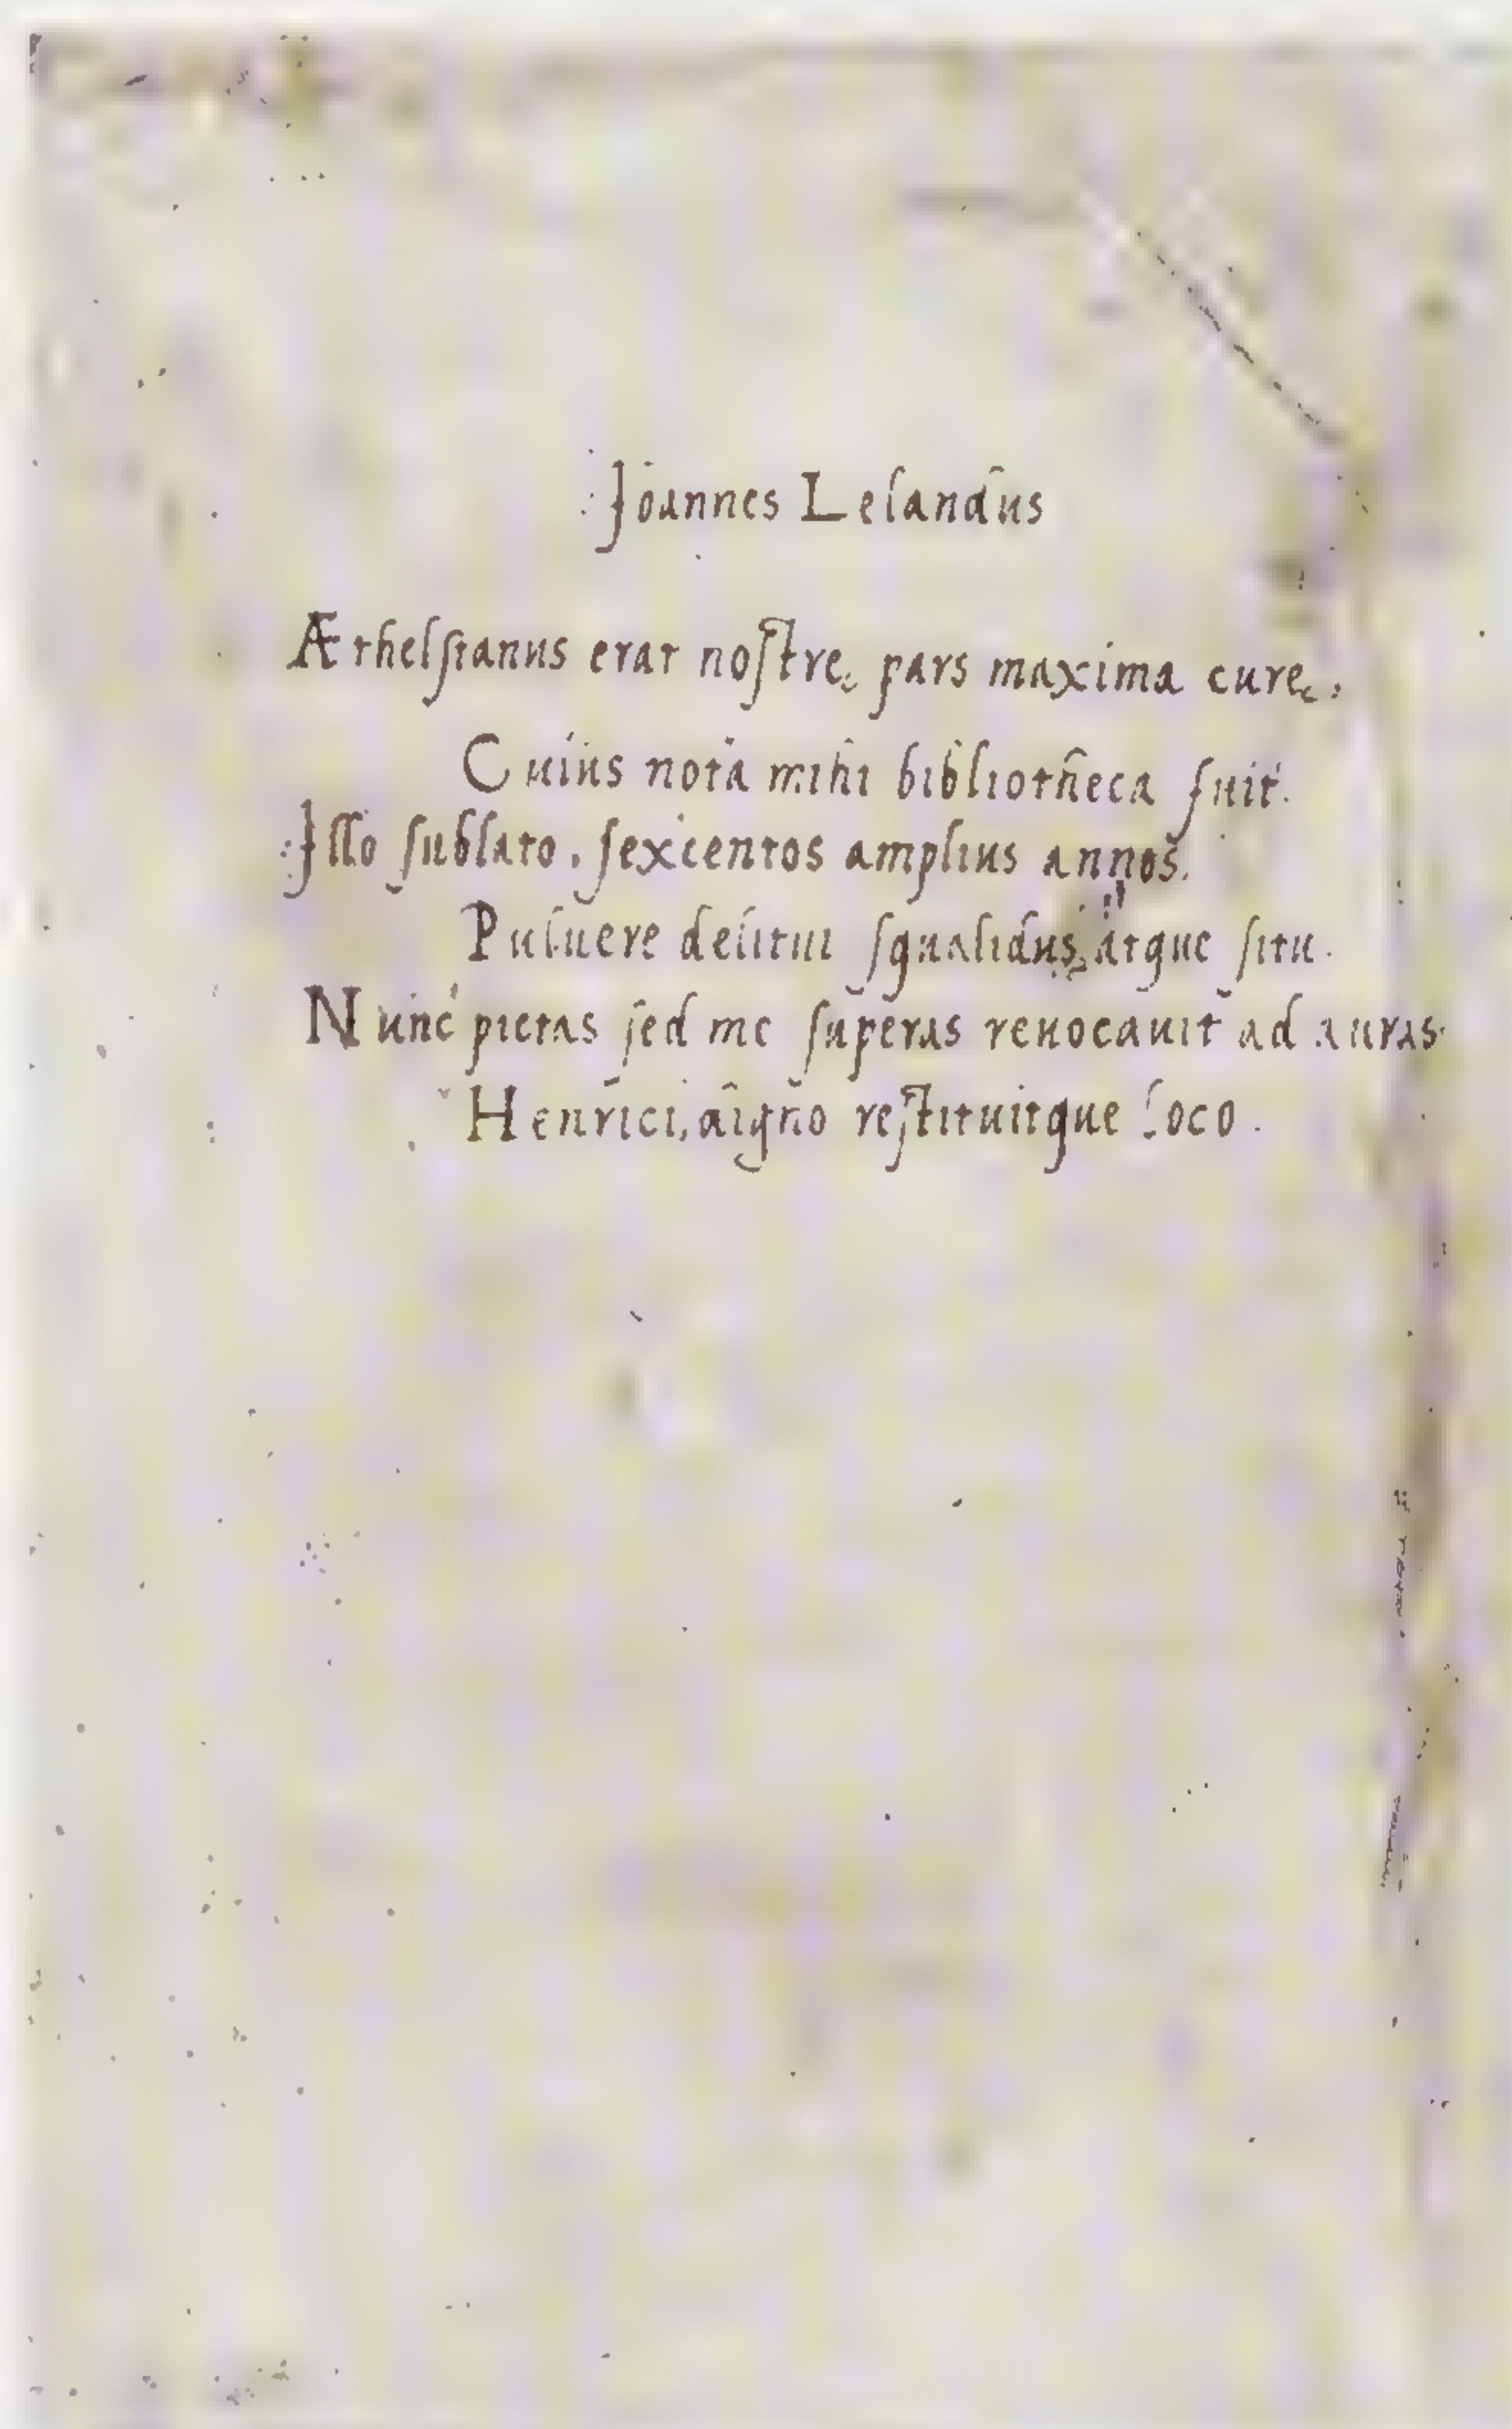 Joannes Lelandus
Æthelstanus erat nostrę pars maxima curę,
Cuius nota mihi bibliotheca fuit.
Illo sublato, sexcentos amplius annos,
Puluere delitui squalidus, atque situ.
Nunc pietas sed me superas reuocauit ad auras
Henrici, digno restituitque loco.